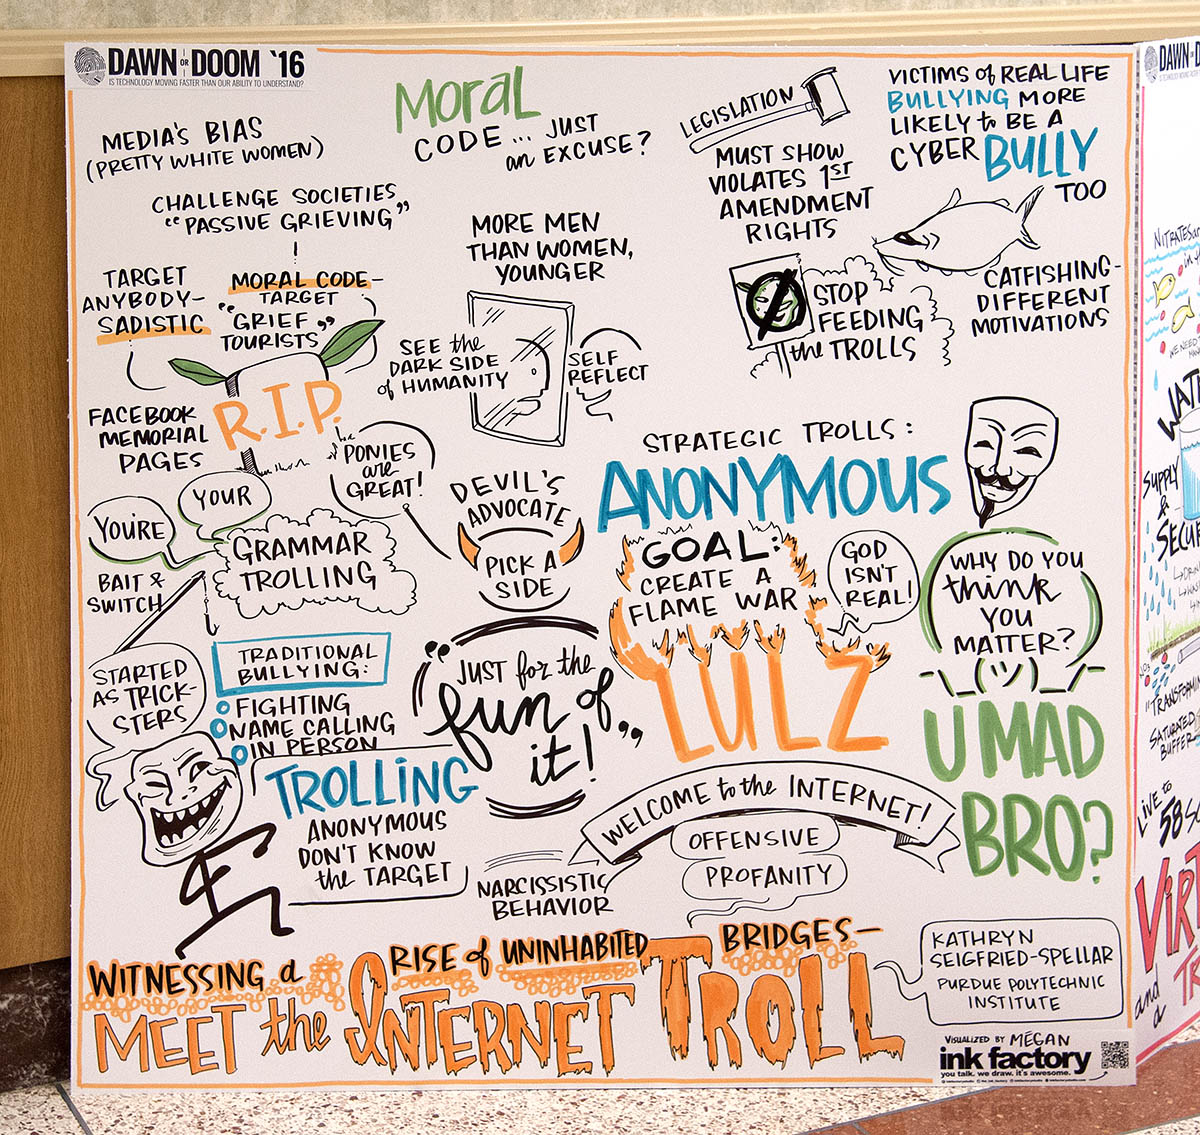 DAWN OR DOOM '16
IS TECHNOLOGY MOVING FASTER THAN OUR ABILITY TO UNDERSTAND?
MEDIA'S BIAS
(PRETTY WHITE WOMEN)
CHALLENGE SOCIETIES
"PASSIVE GRIEVING"
TARGET
ANYBODY-
SADISTIC
MORAL CODE-
TARGET
"GRIEF
TOURISTS"
R.I.P.
FACEBOOK
MEMORIAL
PAGES
MORAL
CODE... JUST
an EXCUSE?
MORE MEN
THAN WOMEN,
YOUNGER
SEE the
DARK SIDE
of HUMANITY
SELF
REFLECT
LEGISLATION
MUST SHOW
VIOLATES 1ST
AMENDMENT
RIGHTS
VICTIMS of REAL LIFE
BULLYING MORE
LIKELY to BE A
CYBER BULLY
TOO
CATFISHING-
DIFFERENT
MOTIVATIONS
STOP
FEEDING
the TROLLS
PONIES
are
GREAT!
YOUR
YOU'RE
GRAMMAR
TROLLING
BAIT &
SWITCH
DEVIL'S
ADVOCATE
PICK A
SIDE
STRATEGIC TROLLS:
ANONYMOUS
GOAL:
CREATE A
FLAME WAR
LULZ
GOD
ISN'T
REAL!
WHY DO YOU
think
YOU
MATTER?
¯\_(ツ)_/¯
U MAD
BRO?
STARTED
AS TRICK-
STERS
TRADITIONAL
BULLYING:
FIGHTING
NAME CALLING
IN PERSON
TROLLING
ANONYMOUS
DON'T KNOW
the TARGET
"JUST for the
fun of
it!"
WELCOME to the INTERNET!
OFFENSIVE
PROFANITY
NARCISSISTIC
BEHAVIOR
WITNESSING a RISE of UNINHABITED BRIDGES-
MEET the INTERNET TROLL
KATHRYN
SEIGFRIED-SPELLAR
PURDUE POLYTECHNIC
INSTITUTE
VISUALIZED BY MEGAN
ink factory
you talk. we draw. it's awesome.
DAWN
NITRATES
WE NEED
SUPPLY
&
SECUR
"TRANSFORMIN
SATURATED
BUFFER
LIVE to
58
VIRT
and
a